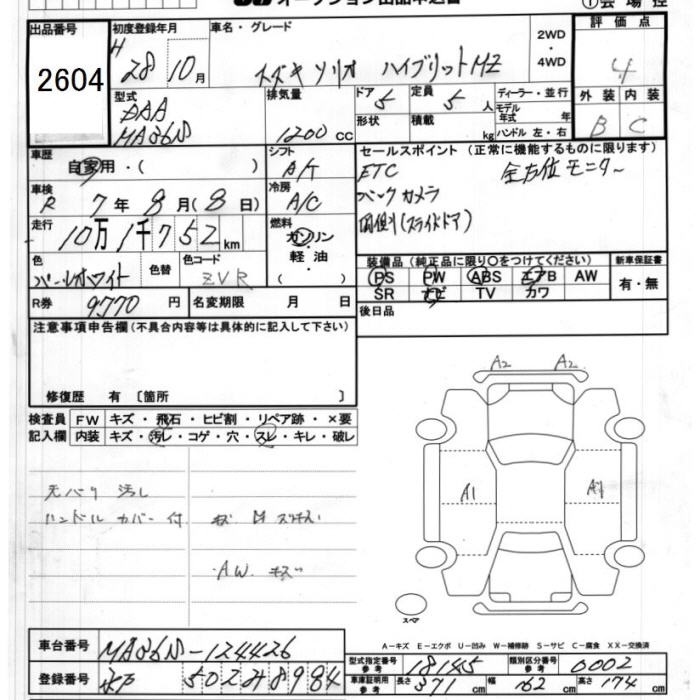 オークション出品申込書 ①会場控
出品番号 2604
初度登録年月 H 28年 10月
車名・グレード スズキ ソリオ ハイブリットMZ
2WD・4WD
評価点 4
外装 B 内装 C
型式 DAA MA36S
排気量 1200 CC
ドア 5 定員 5人
形状 積載 kg
ディーラー・並行
モデル年式 年
ハンドル 左・右
車歴 自家用・( )
シフト A/T
セールスポイント (正常に機能するものに限ります)
ETC 全方位モニター
バックカメラ
両側(スライドドア)
車検 R 7年 8月 (8日)
冷房 A/C
走行 10万1千752km
燃料 ガソリン・軽油・( )
色 パールホワイト 色替 色コード ZVR
装備品 (純正品に限り○をつけてください)
PS PW ABS エアB AW
SR ナビ TV カワ
新車保証書 有・無
R券 9770円 名変期限 月 日
後日品
注意事項申告欄(不具合内容等は具体的に記入して下さい)
修復歴 有 〔箇所 〕
検査員記入欄 FW キズ・飛石・ヒビ割・リペア跡・×要
内装 キズ・汚レ・コゲ・穴・スレ・キレ・破レ
天バリ 汚し
ハンドル カバー 付
A.W. キズ
A2 A2
A1 A1
スペア
A−キズ E−エクボ U−凹み W−補修跡 S−サビ C−腐食 XX−交換済
車台番号 MA36S-124426
登録番号 水戸 502 み 8984
型式指定番号 参考 18145 類別区分番号 参考 0002
車庫証明用 参考 長さ 371cm 幅 162cm 高さ 174cm